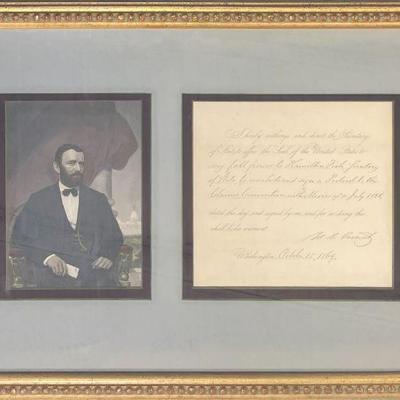 I hereby authorize and direct the Secretary
of State to affix the Seal of the United States to
my full power to Hamilton Fish, Secretary
of State, to
Claims Convention with Mexico of 4 July 1868
dated this day and signed by me, and for so doing this
shall be his warrant.
U. S. Grant
Washington, October 15, 1869.